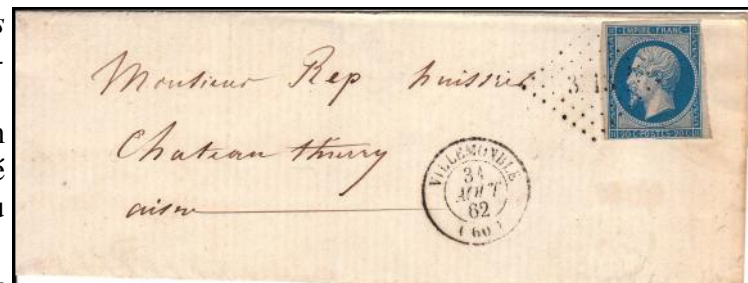 EMPIRE FRANC
20 C POSTES 20 C
Monsieur Rep huissier
Chateau thierry
aisne
VILLEMONBLE
31
AOUT
62
(60)